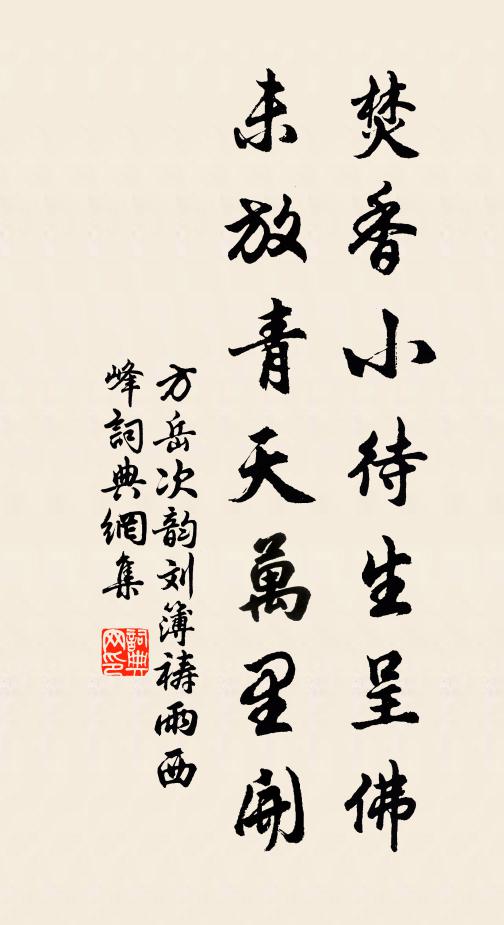 焚香小待生呈佛
未放青天萬里開
方岳次韵刘簿祷雨西
峰詞典網集
詞典网印